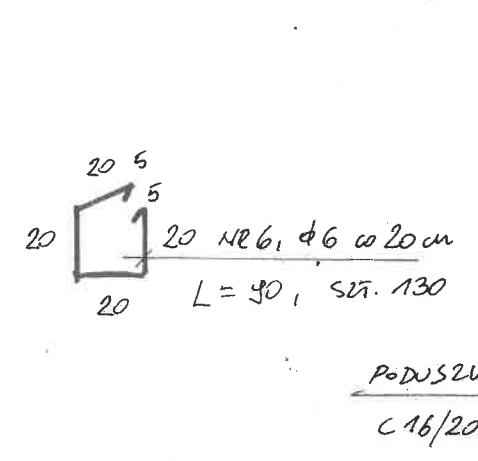 20 5
5
20
20 NR 6, φ6 co 20 cm
20
L = 90, szt. 130
PODUSZK
C 16/20